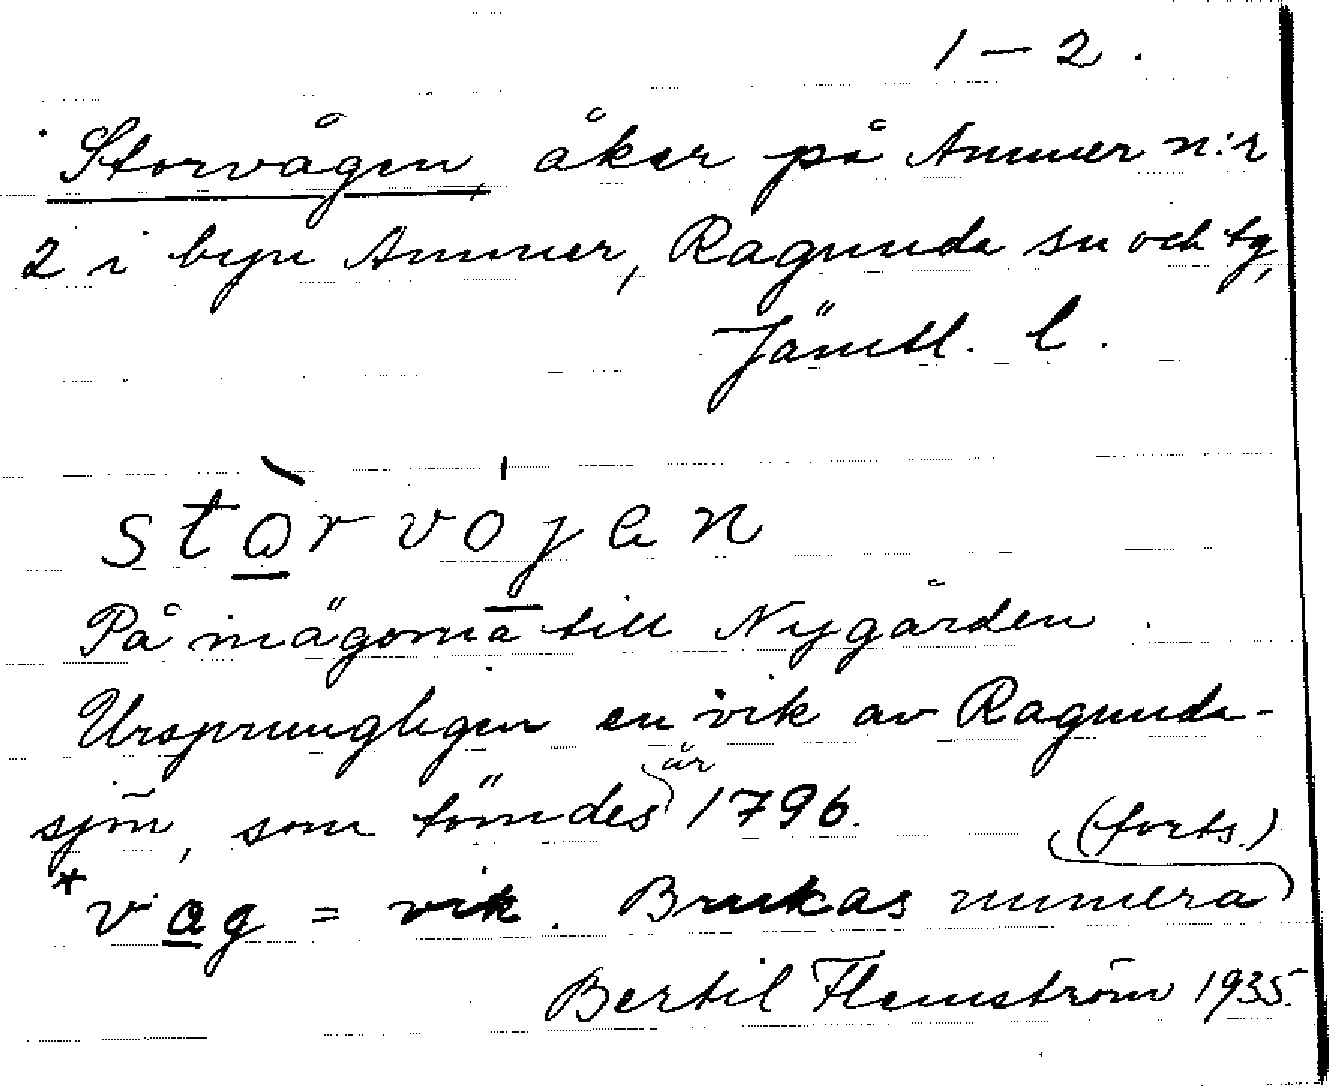 1 – 2.
Storvågen, åker på Ammer n:r
2 i byn Ammer, Ragunda sn och tg,
Jämtl. l.
stòrvójen
På inägorna till Nygården.
Ursprungligen en vik av Ragunda-
sjön, som tömdes år 1796.
(forts.)
*våg = vik. Brukas numera
Bertil Flemström 1935.